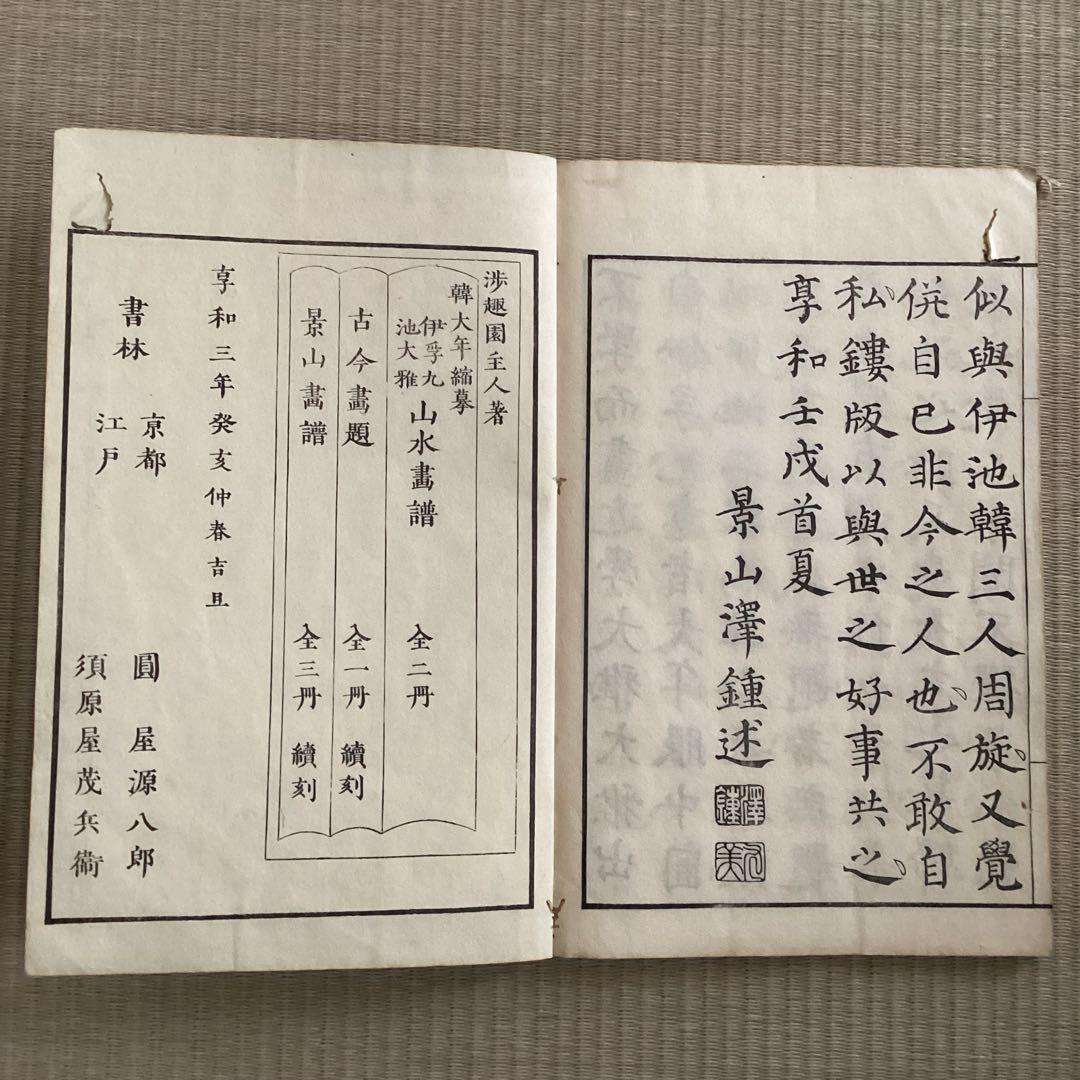 似與伊池韓三人周旋又覺
併自已非今之人也不敢自
私鏤版以與世之好事共之
享和壬戌首夏
景山澤鍾述
澤鍾
涉趣園主人著
韓大年縮摹
伊孚九
池大雅
山水畫譜 全二冊
古今畫題 全一冊 續刻
景山畫譜 全三冊 續刻
享和三年癸亥仲春吉旦
書林
京都 圓屋源八郎
江戶 須原屋茂兵衞